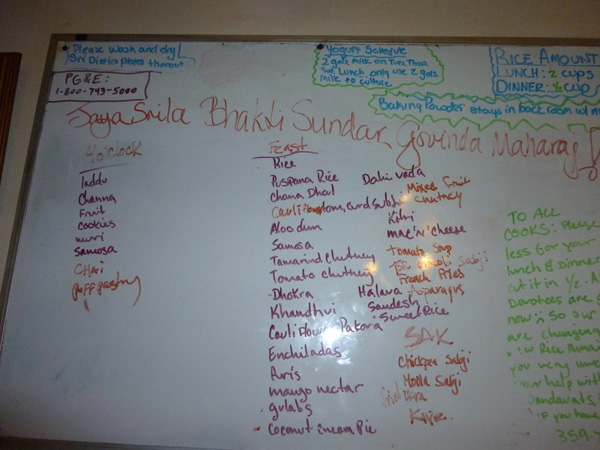 Please wash and dry
Sri Dieties plates thorou
PG&E:
1-800-743-5000
Yogurt Schedule
2 gals. milk on Tues, Thurs
Sat. Lunch, only use 2 gals
milk to culture
RICE AMOUNT
LUNCH: 2 cups
DINNER: 1/2 cup
Baking Powder stays in back room w/
Jaya Srila Bhakti Sundar Govinda Maharaj
4 o'clock
laddu
channa
fruit
cookies
murri
samosa
Chai
puff pastry
Feast
Rice
Puspana Rice
Chana Dhal
Cauliflower, curd subji
Aloo dum
Samosa
Tamarind Chutney
Tomato chutney
Dhokra
Khandhvi
Cauliflower Pakora
Enchiladas
Puris
mango nectar
gulabs
Coconut cream Pie
Dahi vada
Mixed fruit
chutney
Kofri
mac'n'cheese
Tomato Soup
Broccoli Sabji
French Fries
Halava
Asparagus
Sandesh
Sweet Rice
SAK
Chickpea Sabji
Moola Sabji
TO ALL
COOKS: Please
less for your
lunch & Dinner
cut it in 1/2. A
Devotees are
now :) So our
are changing
Rice Amou
you very much
your help with
Dandavats
if you have
359-7